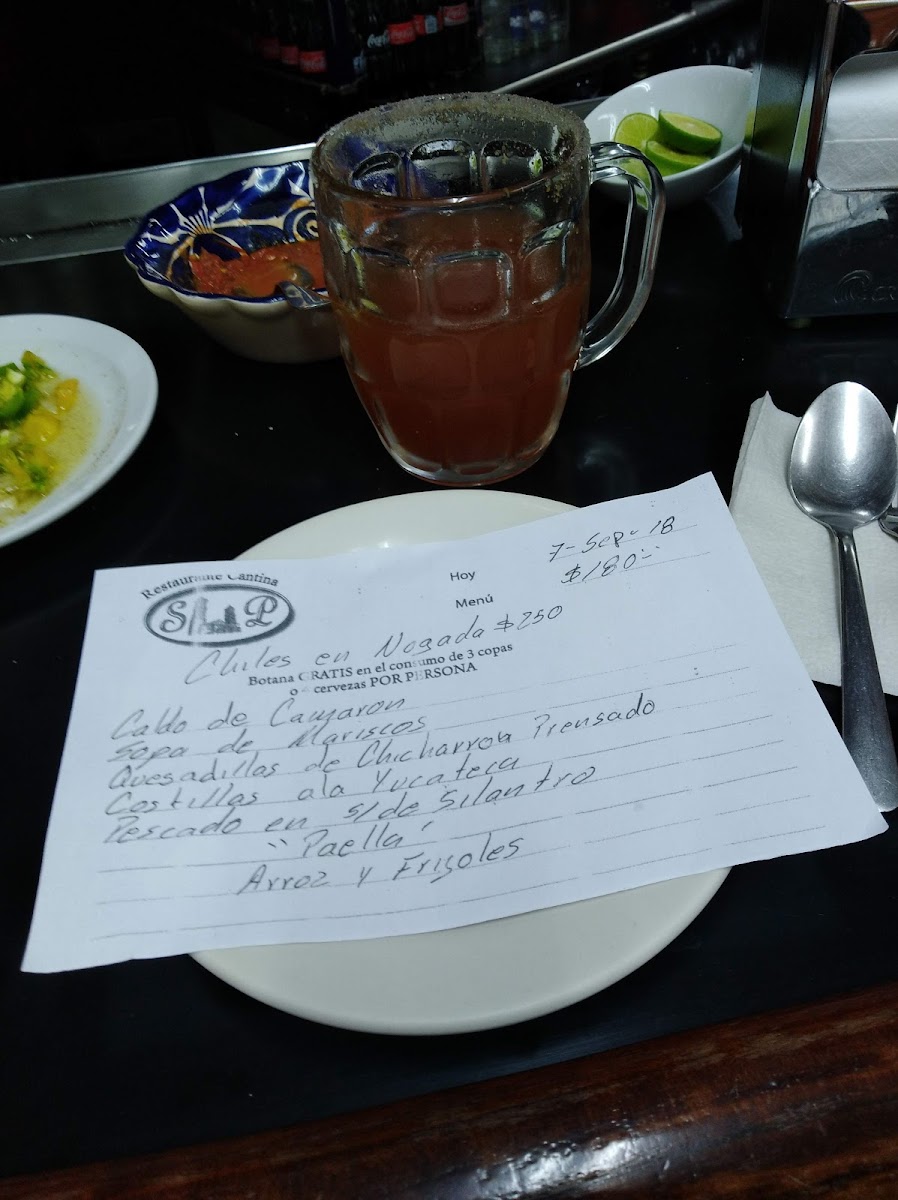 Coca-Cola
Restaurante Cantina
S P
Hoy
7-Sep-18
$180
Menú
Chiles en Nogada $250
Botana GRATIS en el consumo de 3 copas
o cervezas POR PERSONA
Caldo de Camaron
Sopa de Mariscos
Quesadillas de Chicharron Prensado
Costillas ala Yucateca
Pescado en s/de Silantro
"Paella"
Arroz y Frijoles